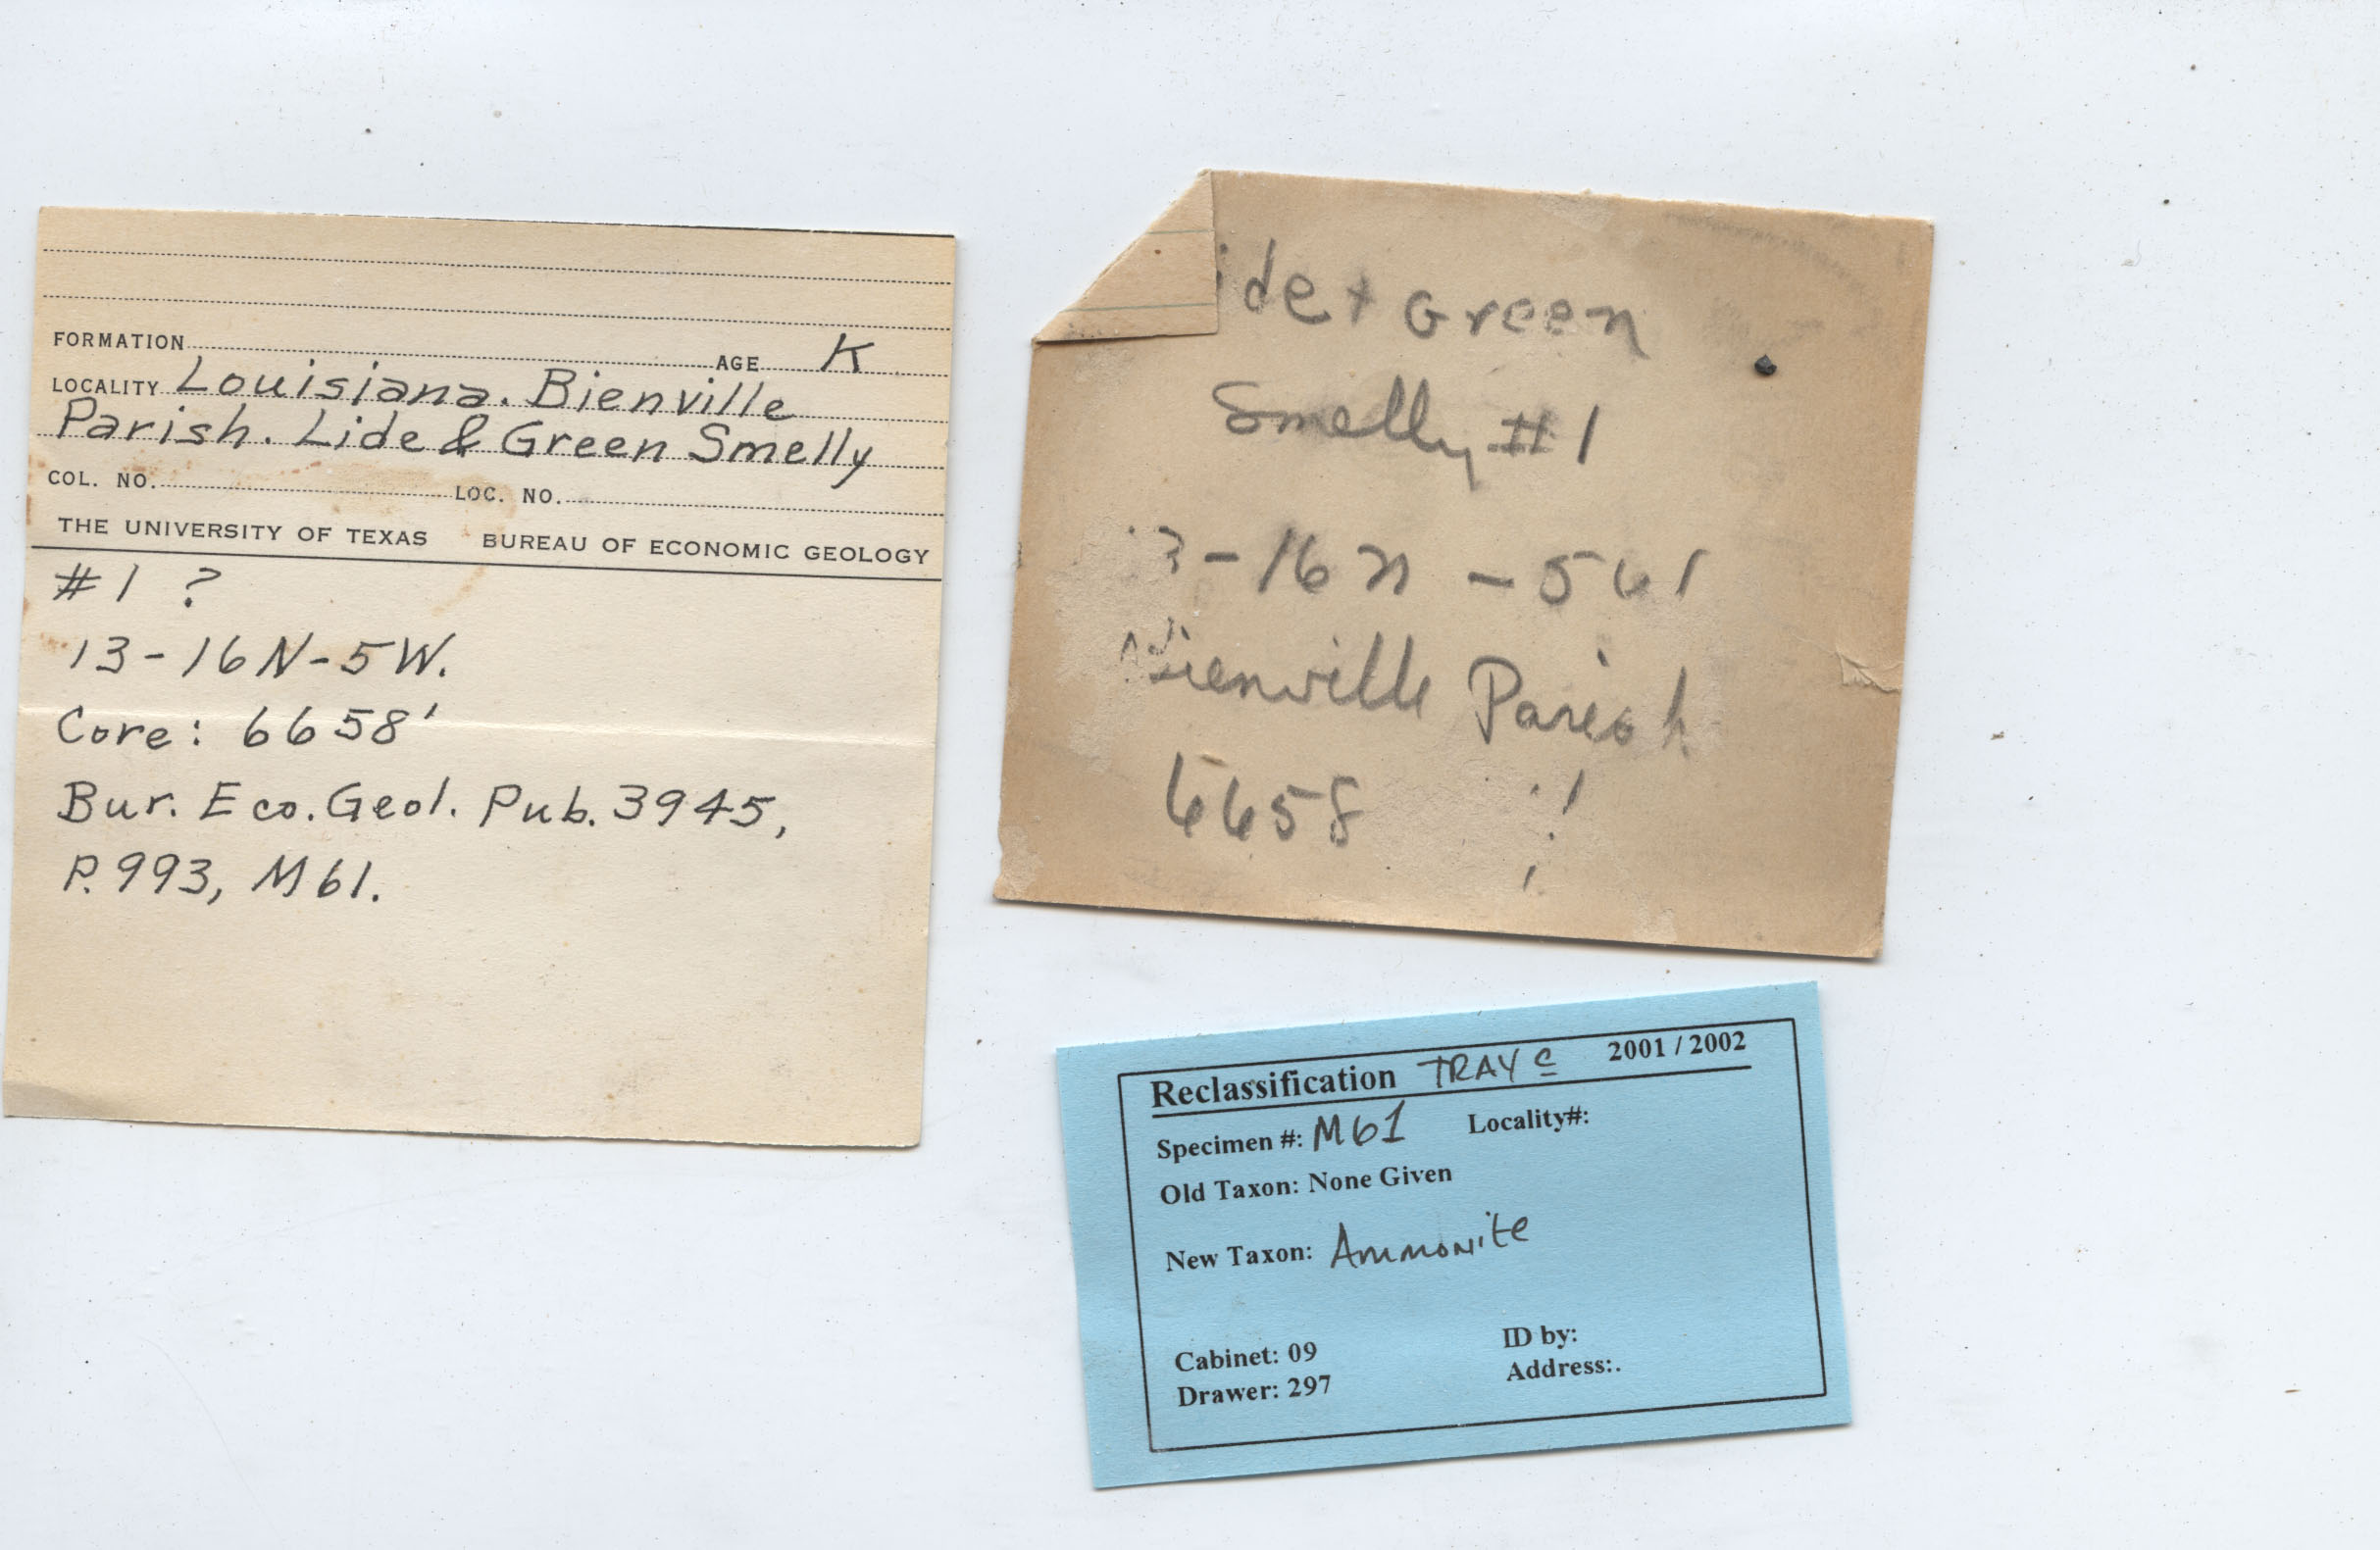 FORMATION AGE K
LOCALITY Louisiana. Bienville
Parish. Lide & Green Smelly
COL. NO. LOC. NO.
THE UNIVERSITY OF TEXAS BUREAU OF ECONOMIC GEOLOGY
#1 ?
13-16N-5W.
Core: 6658'
Bur. Eco. Geol. Pub. 3945,
P. 993, M61.
ide + Green
Smelly #1
3-16n-5W
Bienville Parish
6658
Reclassification TRAY C 2001 / 2002
Specimen #: M61 Locality#:
Old Taxon: None Given
New Taxon: Ammonite
Cabinet: 09 ID by:
Drawer: 297 Address:.